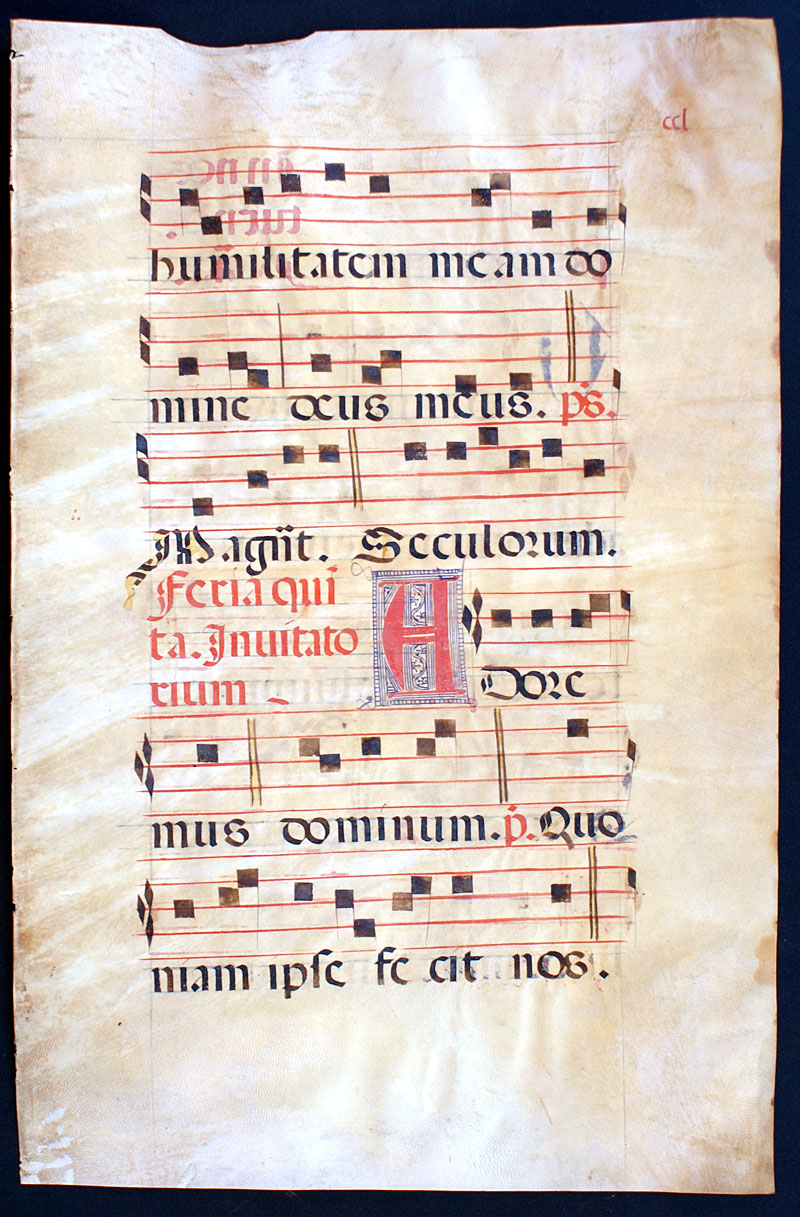 ccl
humilitatem meam do
mine deus meus. ps.
Magnt. Seculorum.
Feria qui
ta. Inuitato
rium
Adore
mus dominum. p. Quo
niam ipse fe cit nos.